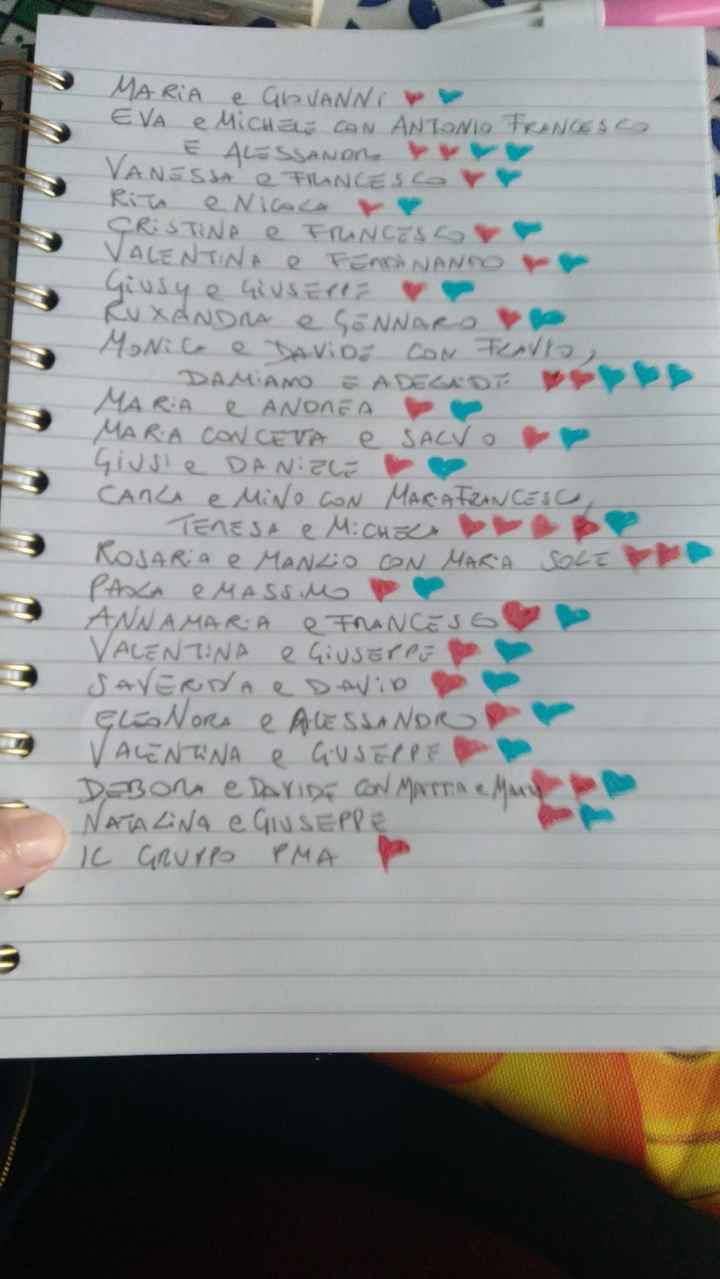 MARIA e GIOVANNI
EVA e MICHELE CON ANTONIO FRANCESCO
E ALESSANDRO
VANESSA e FRANCESCO
RITA e NICOLA
CRISTINA e FRANCESCO
VALENTINA e FERDINANDO
GIUSY e GIUSEPPE
RUXANDRA e GENNARO
MONICA e DAVIDE CON FLAVIO,
DAMIANO E ADELAIDE
MARIA e ANDREA
MARIA CONCETTA e SALVO
GIUSI e DANIELE
CARLA e MINO CON MARIAFRANCESCA,
TERESA e MICHELA
ROSARIA e MANLIO CON MARIA SOLE
PAOLA e MASSIMO
ANNAMARIA e FRANCESCO
VALENTINA e GIUSEPPE
SAVERINA e DAVID
ELEONORA e ALESSANDRO
VALENTINA e GIUSEPPE
DEBORA e DAVIDE CON MATTIA e
NATALINA e GIUSEPPE
IL GRUPPO PMA